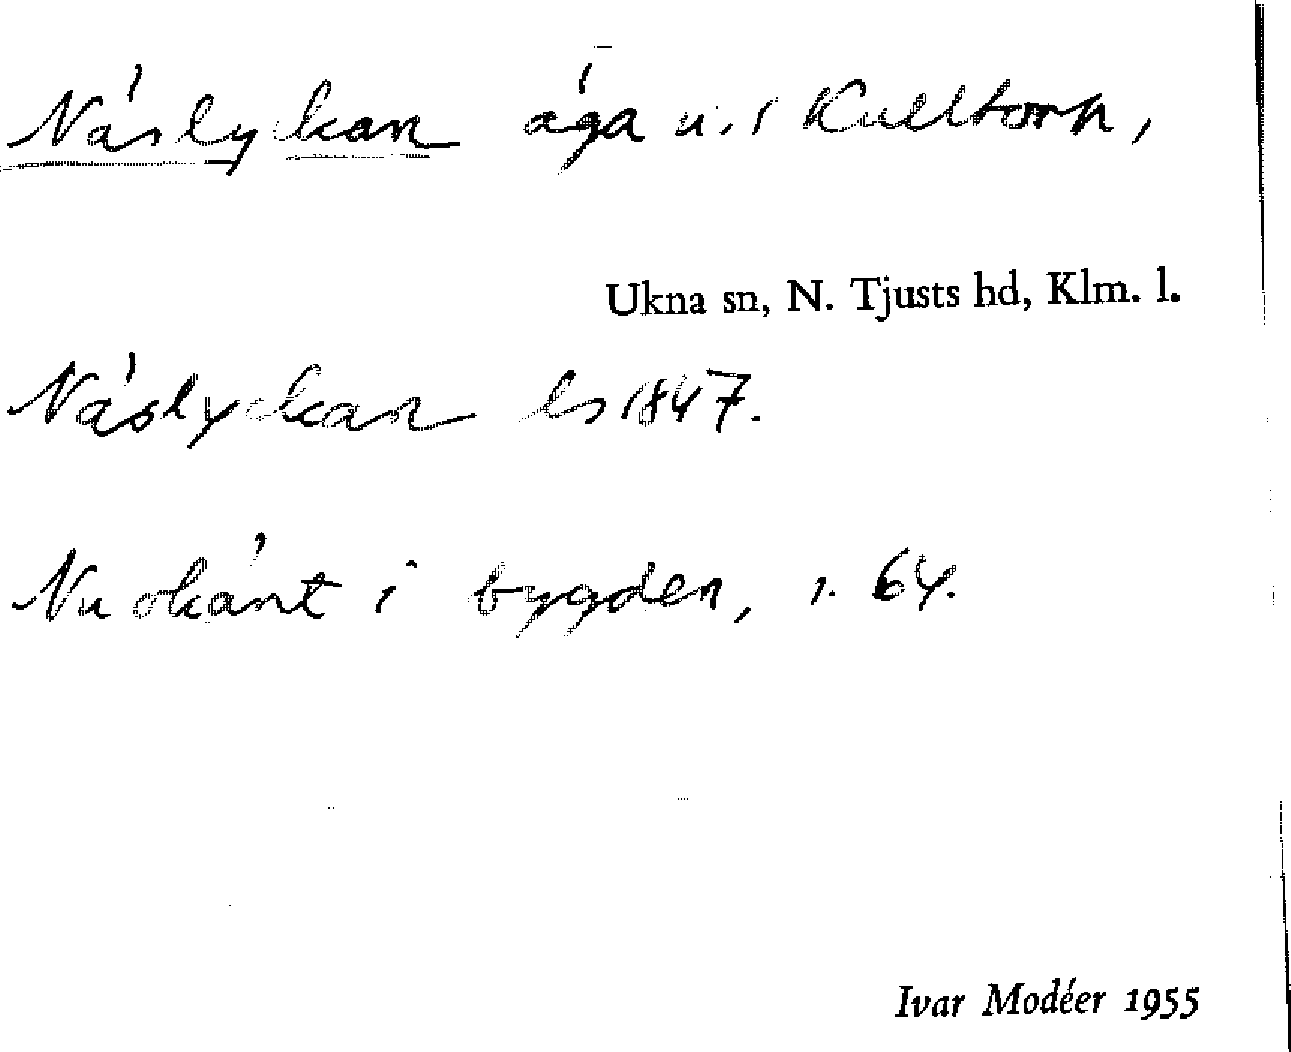 Näslyckan äga u. Kulltorp,
Ukna sn, N. Tjusts hd, Klm. l.
Näslyckan ls 1847.
Nu okänt i bygden, s. 64.
Ivar Modéer 1955